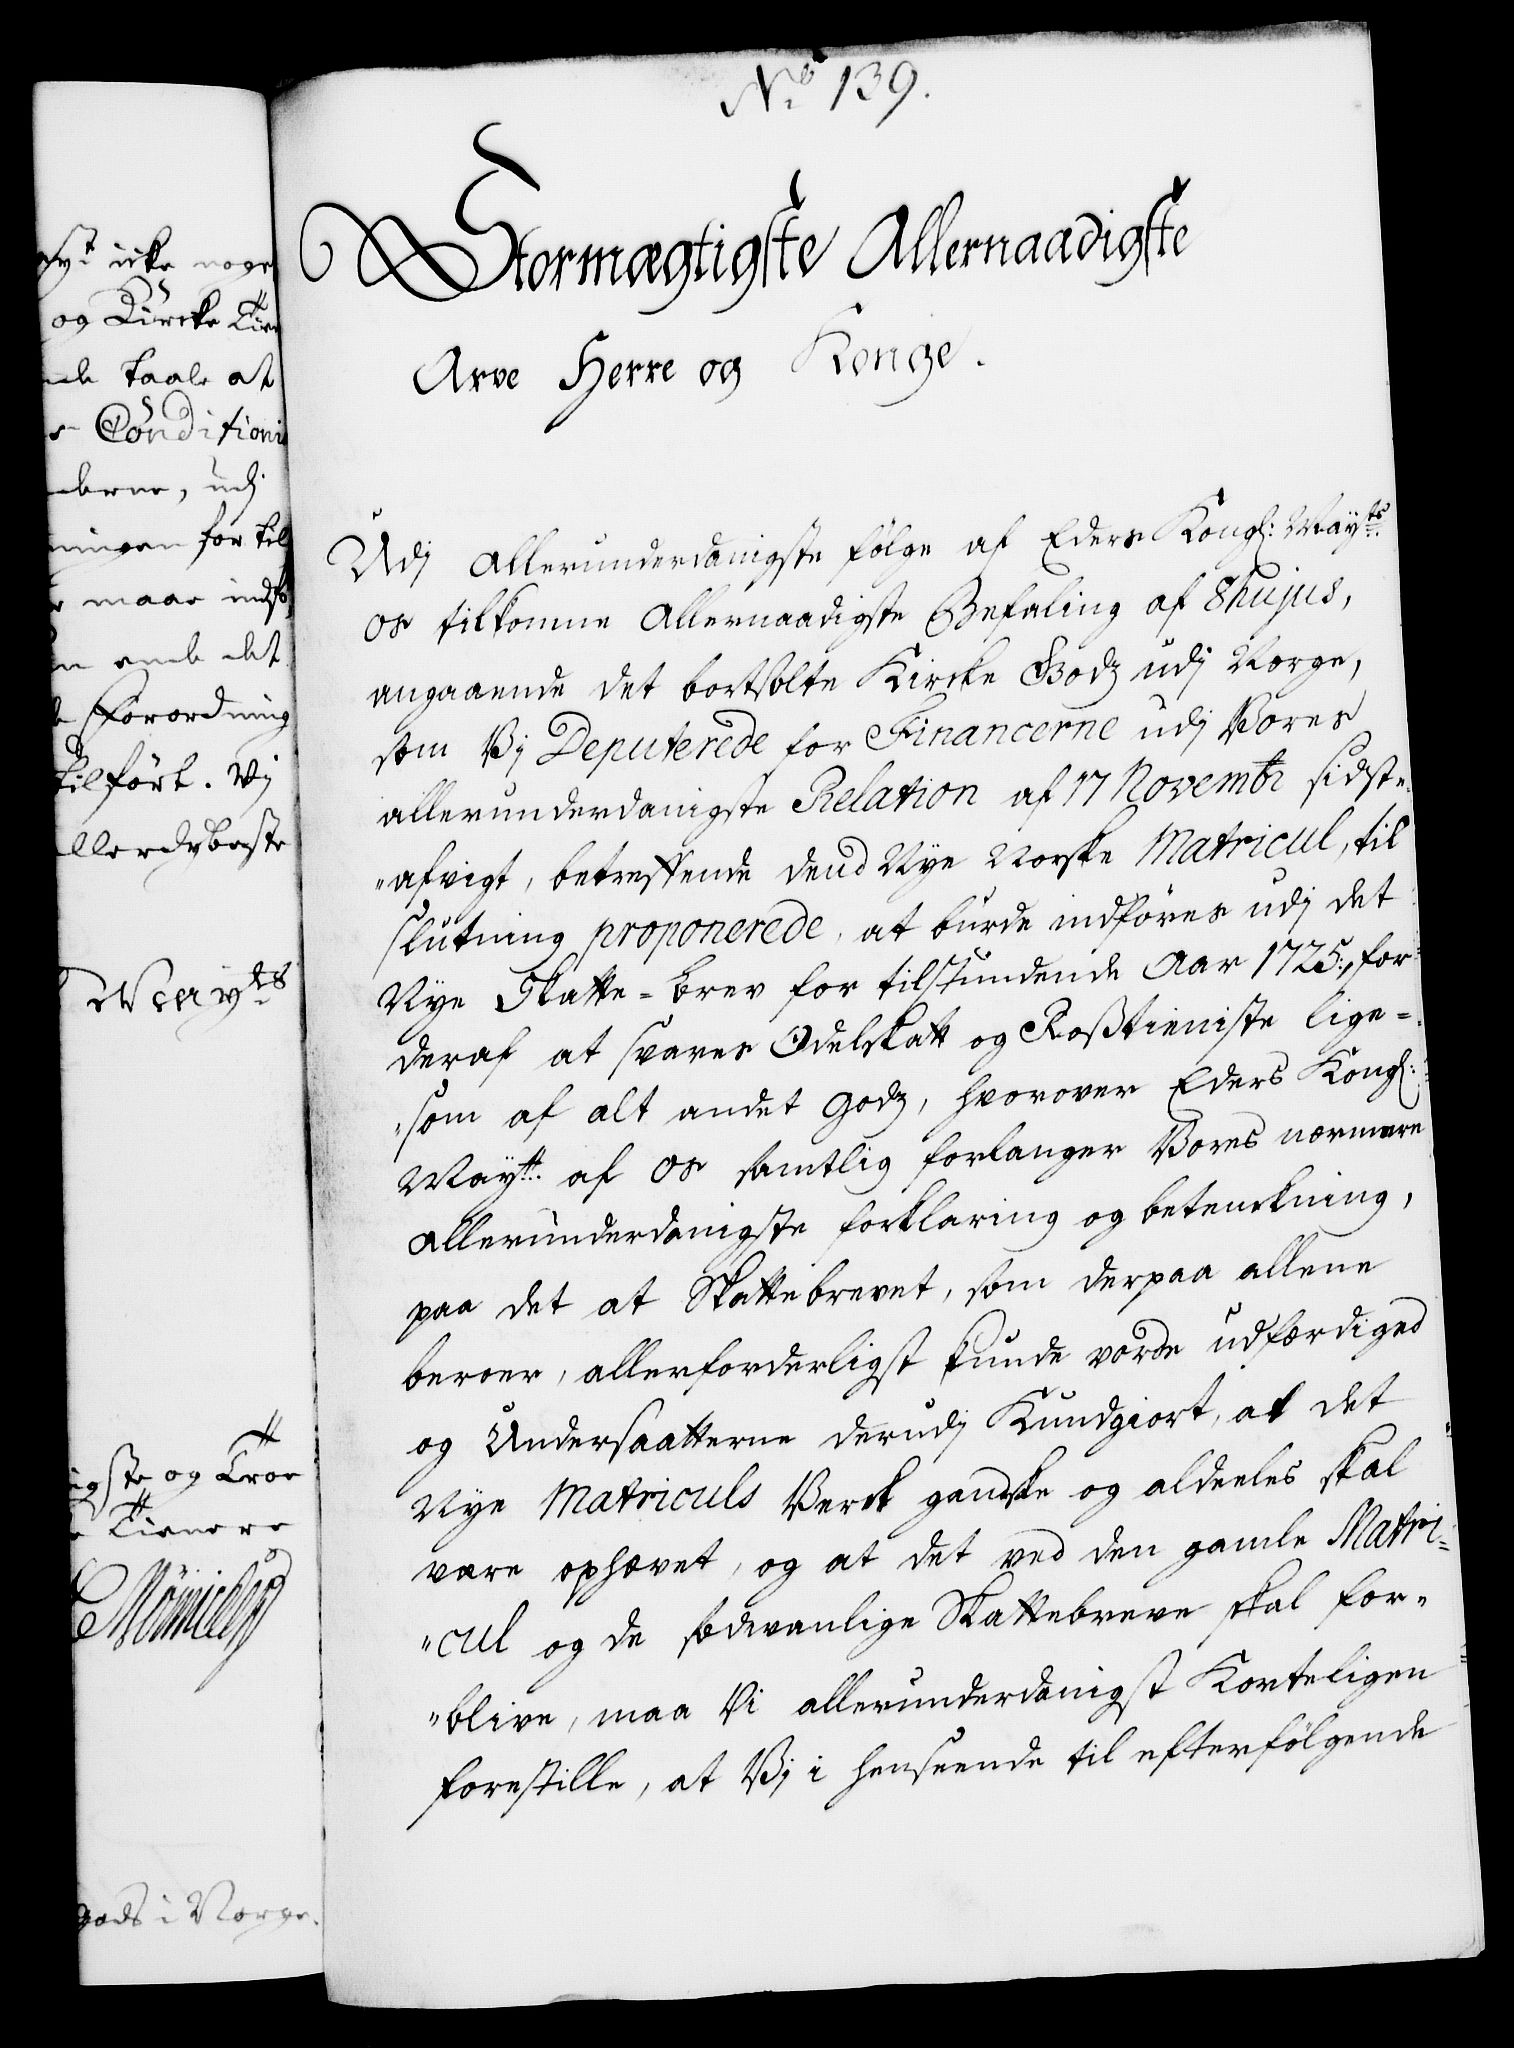 No 139.
Stormægtigste Allernaadigste
Arve Herre og Konge.
Udj Allerunderdanigste følge af Eders Kongl: Mayts
os tilkomne Allernaadigste Befaling af 8 hujus,
angaaende det bortsolte Kircke Godz udj Norge,
som Vj Deputerede for Financerne udj Vores
allerunderdanigste Relation af 17 Novembr sidste
"afvigt, betreffende dend Nye Norske Matricul, til
slutning proponerede, at burde indføres udj det
Nye Skatte=brev for tilstundende Aar 1725, for
deraf at svares Odelskatt og Rosstieniste lige=
"som af alt andet godz, hvorover Eders Kongl:
Maytt: af os samtlig forlanger Vores nærmere
allerunderdanigste forklaring og betenckning,
paa det at Skattebrevet, som derpaa allene
beroer, allerforderligst kunde vorde udfærdiged
og Undersaatterne derudj Kundgiort, at det
Nye Matriculs Verck gandske og aldeeles skal
være ophævet, og at det ved den gamle Matri=
"cul og de sædvanlige Skattebreve skal for=
"blive, maa Vi allerunderdanigst Korteligen
forestille, at Vj i henseende til efterfølgende
icke noge
og Kircke
taale at
Conditioni
udj
for til
maae
ende det
forordning
tilført. Vj
Mayts
og Troe
Tienere
gods i Norge.